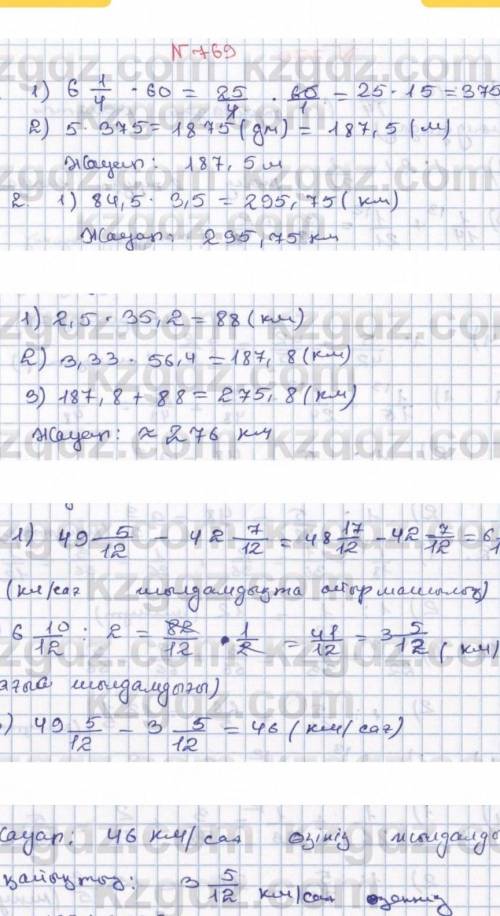 N 769
1) 6 1/4 · 60 = 25/4 · 60/1 = 25 · 15 = 375
2) 5 · 375 = 1875 (дм) = 187,5 (м)
Жауап: 187,5 м
2. 1) 84,5 · 3,5 = 295,75 (км)
Жауап: 295,75 км
1) 2,5 · 35,2 = 88 (км)
2) 3,33 · 56,4 = 187,8 (км)
3) 187,8 + 88 = 275,8 (км)
Жауап: ≈ 276 км
1) 49 5/12 - 42 7/12 = 48 17/12 - 42 7/12 = 6
(км/сағ жылдамдықта айырмашылық)
6 10/12 : 2 = 82/12 · 1/2 = 41/12 = 3 5/12 (км)
ағыс жылдамдығы)
) 49 5/12 - 3 5/12 = 46 (км/сағ)
Жауап: 46 км/сағ өзінің жылдамды
қайықтың: 3 5/12 км/сағ өзеннің
kzgdz.com